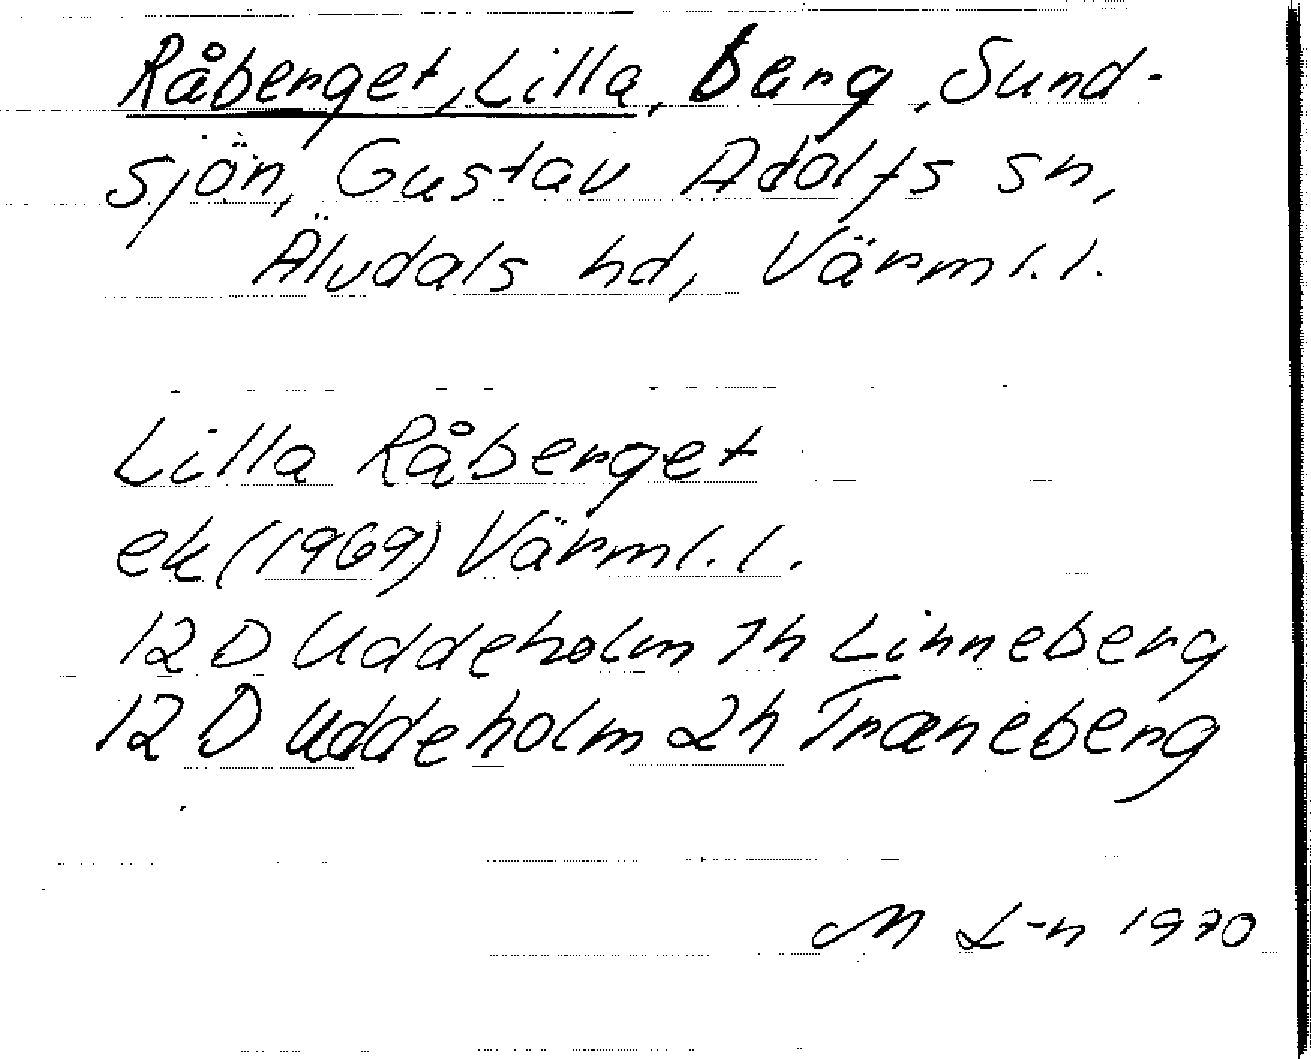 Råberget, Lilla, berg, Sund-
sjön, Gustav Adolfs sn,
Älvdals hd, Värml. l.
Lilla Råberget
ek (1969) Värml. l.
12 D Uddeholm 1h Linneberg
12 D Uddeholm 2h Traneberg
M L-n 1970